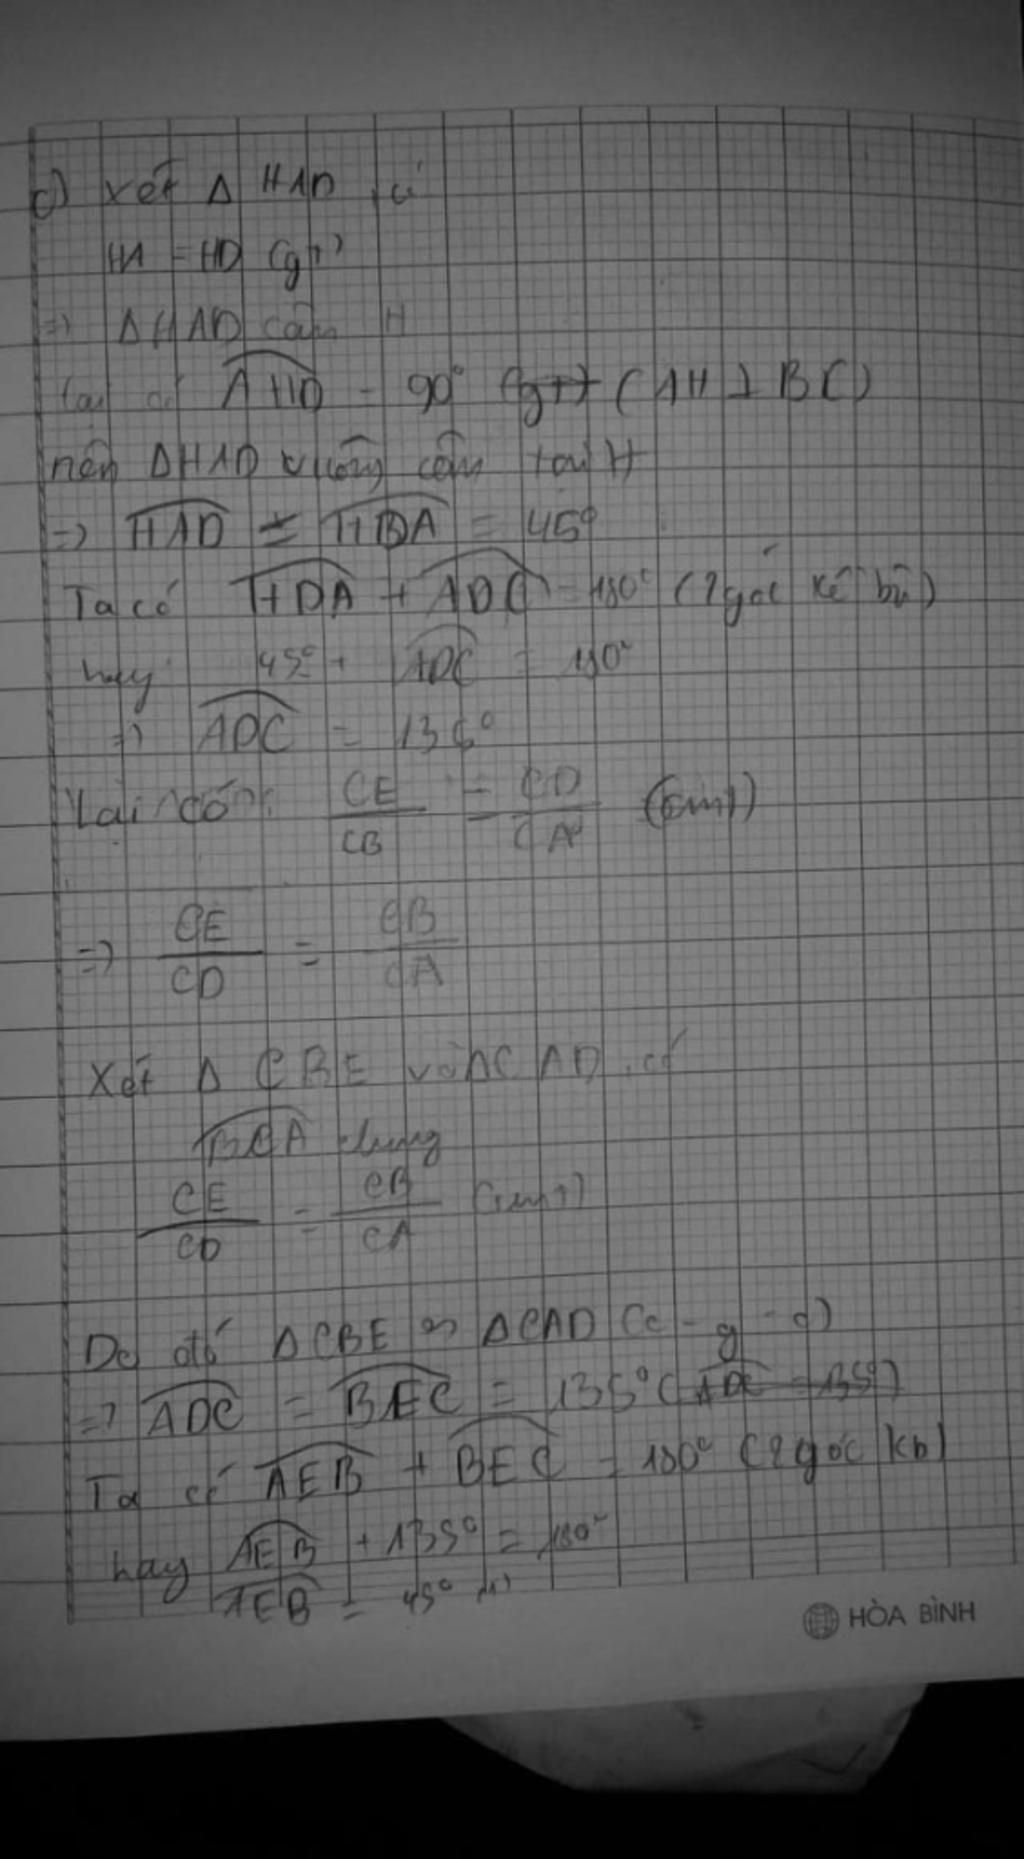 c) Xét Δ HAD có
HA = HD (gt)
=> Δ HAD cân H
Lại có AHD = 90° (gt) (AH ⊥ BC)
nên ΔHAD vuông cân tại H
=> HAD = HDA = 45°
Ta có HDA + ADC = 180° (2 góc kề bù)
hay 45° + ADC = 180°
=> ADC = 135°
Lại có: CE/CB = CD/CA (cmt)
=> CE/CD = CB/CA
Xét Δ CBE và ΔCAD có
BCA chung
CE/CD = CB/CA (cmt)
Do đó ΔCBE ∽ ΔCAD (c - g - c)
=> ADC = BEC = 135° (ADC = 135°)
Ta có AEB + BEC = 180° (2 góc kb)
hay AEB + 135° = 180°
AEB = 45° (1)
HÒA BÌNH